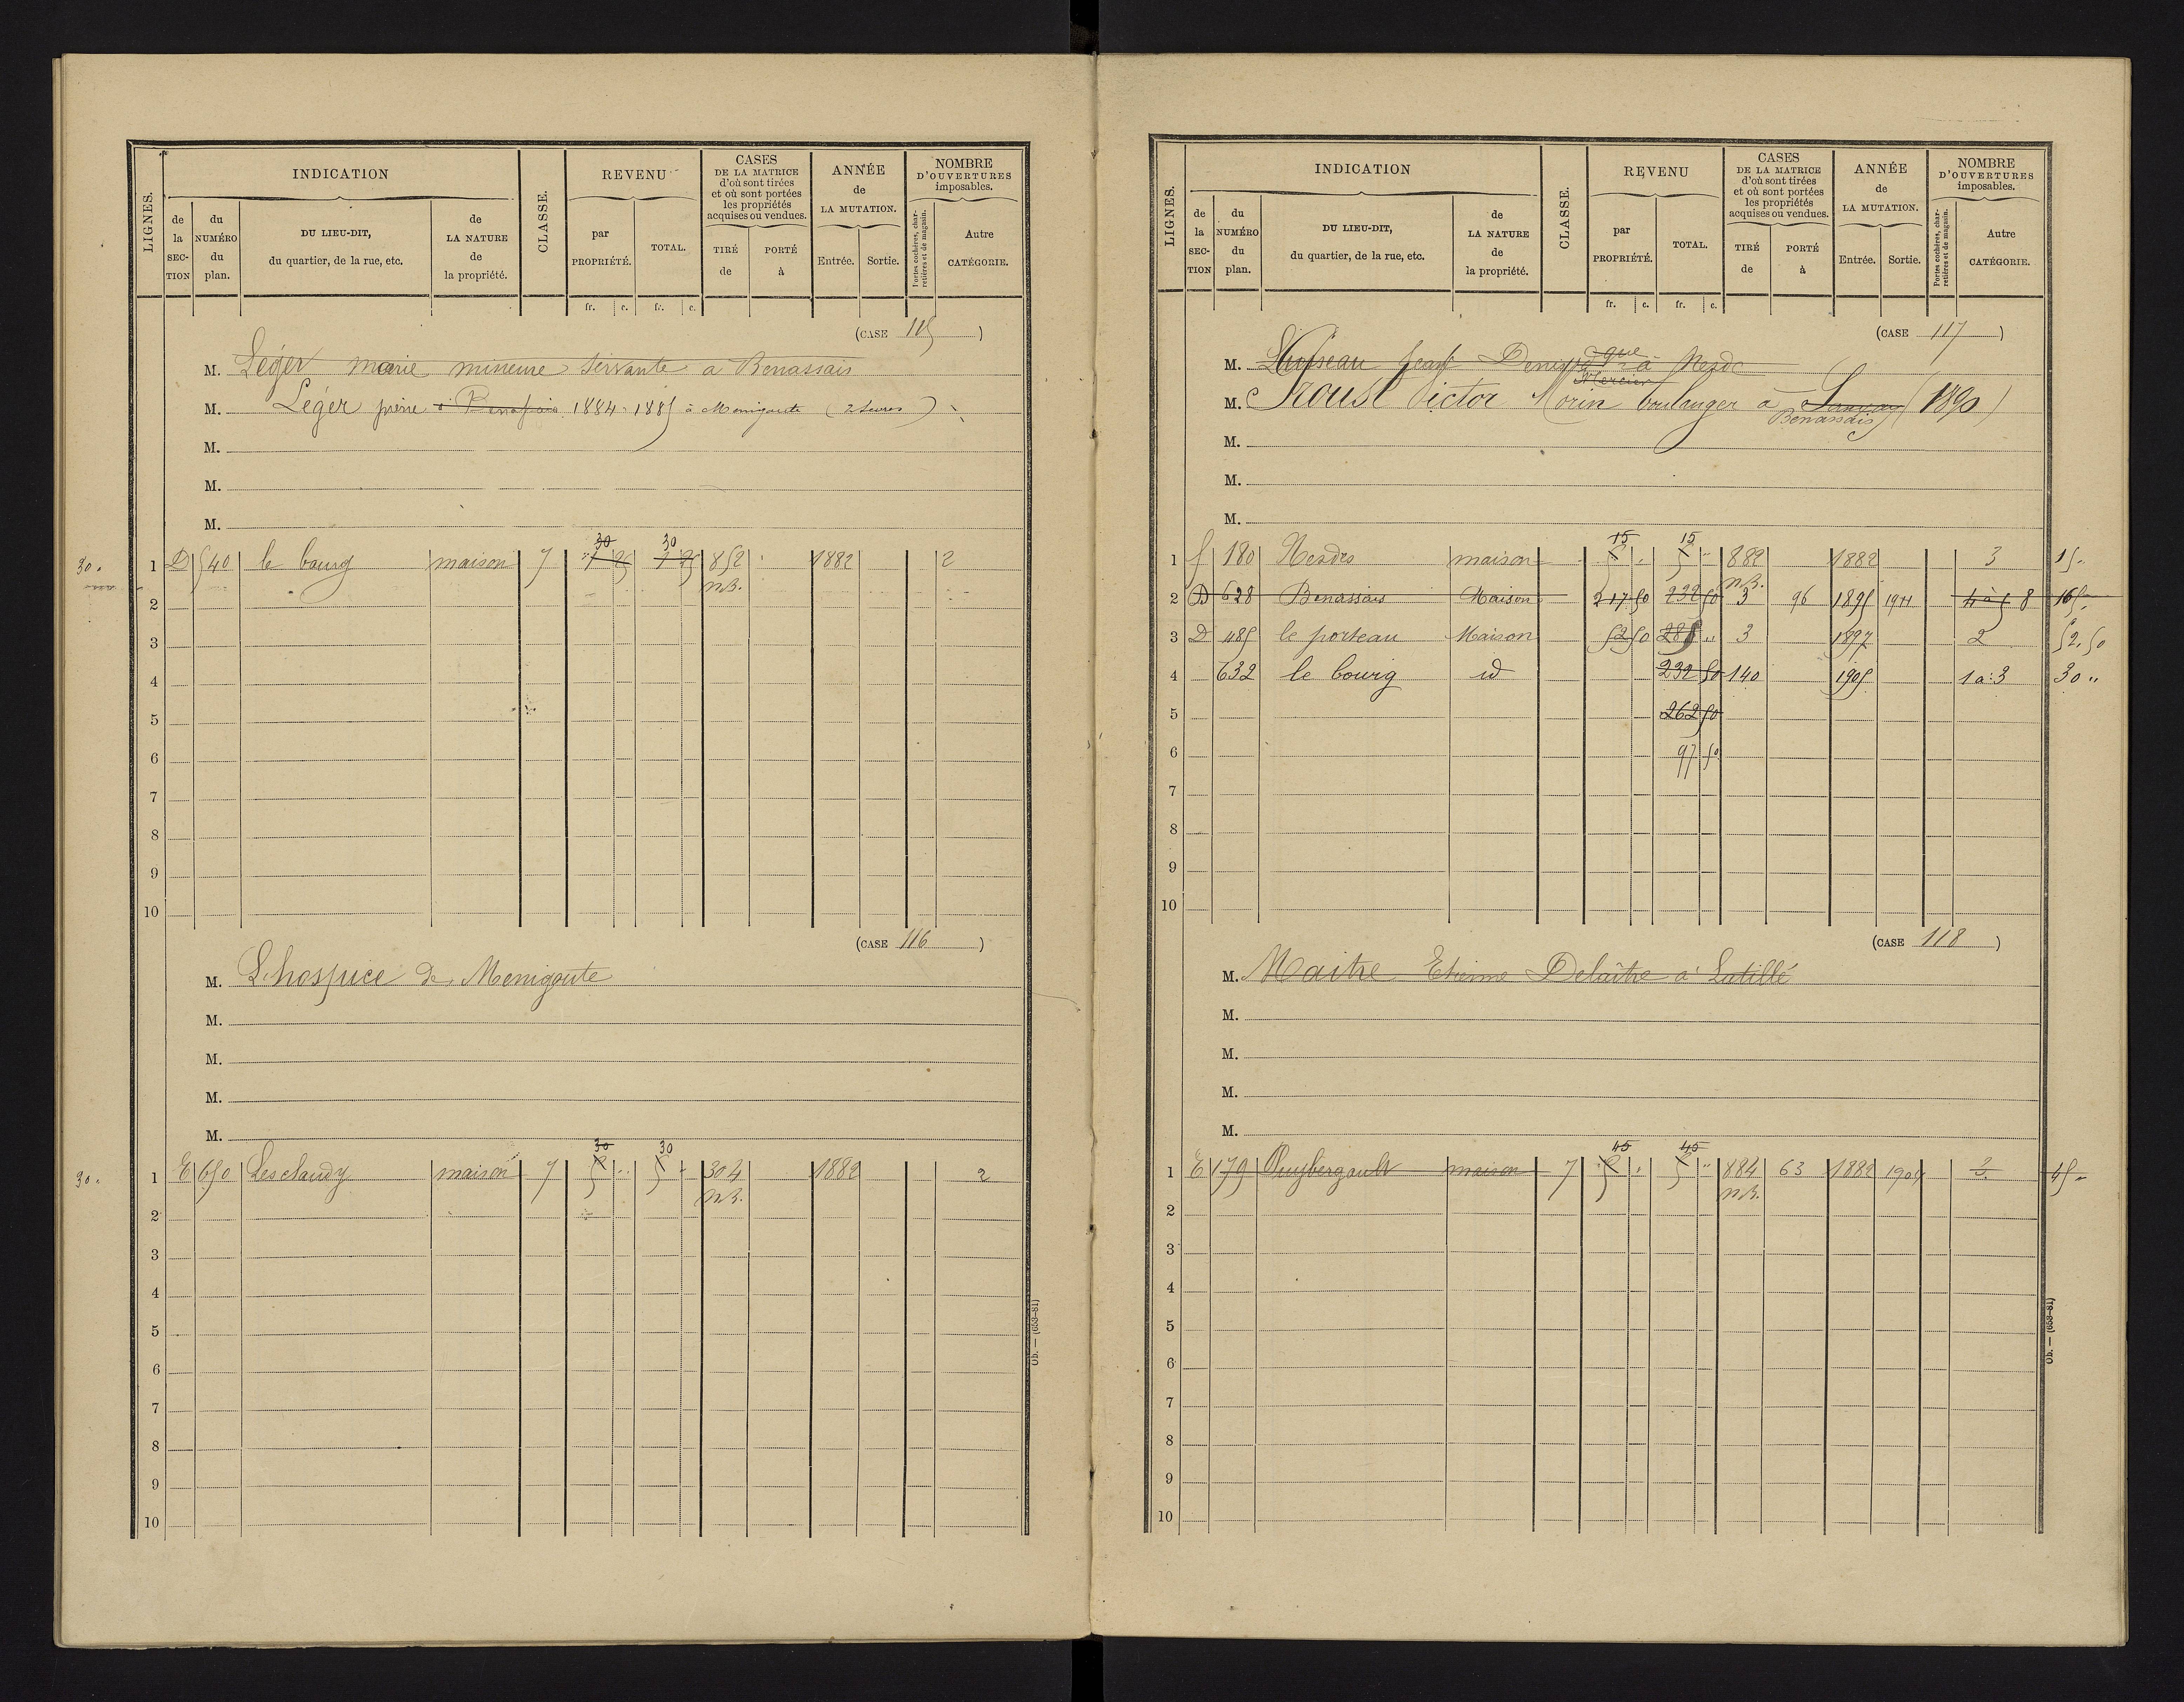 LIGNES. INDICATION CLASSE. REVENU CASES DE LA MATRICE d'où sont tirées et où sont portées les propriétés acquises ou vendues. ANNÉE de LA MUTATION. NOMBRE D'OUVERTURES imposables.
de la SECTION du NUMÉRO du plan. DU LIEU-DIT, du quartier, de la rue, etc. de LA NATURE de la propriété. par PROPRIÉTÉ. TOTAL. TIRÉ de PORTÉ à Entrée. Sortie. Portes cochères, charretières et de magasin. Autre CATÉGORIE.
fr. c. fr. c.
(CASE 115)
M. Léger marie mineure servante a Benassais
M. Léger pierre à Benassais 1884 1885 à Menigoute
M.
M.
M.
30 30
30. 1 D 540 le bourg maison 7 1 25 1 25 852 1882 2
n.B.
2
3
4
5
6
7
8
9
10
(CASE 116)
M. L'hospice de Menigoute
M.
M.
M.
M.
30 30
30. 1 E 650 Lesclaudy maison 7 5 5 304 1882 2
n.B.
2
3
4
5
6
7
8
9
10
Ob. — (653-81)
LIGNES. INDICATION CLASSE. REVENU CASES DE LA MATRICE d'où sont tirées et où sont portées les propriétés acquises ou vendues. ANNÉE de LA MUTATION. NOMBRE D'OUVERTURES imposables.
de la SECTION du NUMÉRO du plan. DU LIEU-DIT, du quartier, de la rue, etc. de LA NATURE de la propriété. par PROPRIÉTÉ. TOTAL. TIRÉ de PORTÉ à Entrée. Sortie. Portes cochères, charretières et de magasin. Autre CATÉGORIE.
fr. c. fr. c.
(CASE 117)
M. Jean Denis à
Mercier
M. Victor Morin boulanger a (1890)
Benassais
M.
M.
M.
15 15
1 f 180 maison 5 5 882 1882 3 15
n.B.
2 D 628 Benassais Maison 217 50 232 50 3 96 1895 1911 4 à 5 8 165
3 D 485 le porteau Maison 52 50 285 3 1897 2 52.50
4 632 le bourg id 232 50 140 1905 1 a 3 30
5 262 50
6 97 50
7
8
9
10
(CASE 118)
M. Maitre Etienne Delaître a Latillé
M.
M.
M.
M.
45 45
1 E 179 Puybergault maison 7 5 5 884 63 1882 1904 3 45
n.B.
2
3
4
5
6
7
8
9
10
Ob. — (653-81)